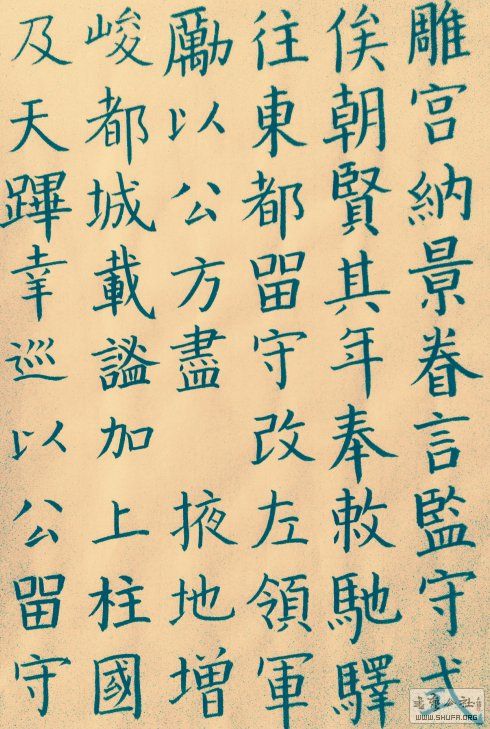 雕宫納景眷言監守式
俟朝賢其年奉敕馳驛
往東都留守改左領軍
勵以公方盡 掖地增
峻都城載謐加上柱國
及天蹕幸巡以公留守
WWW.SHUFA.ORG